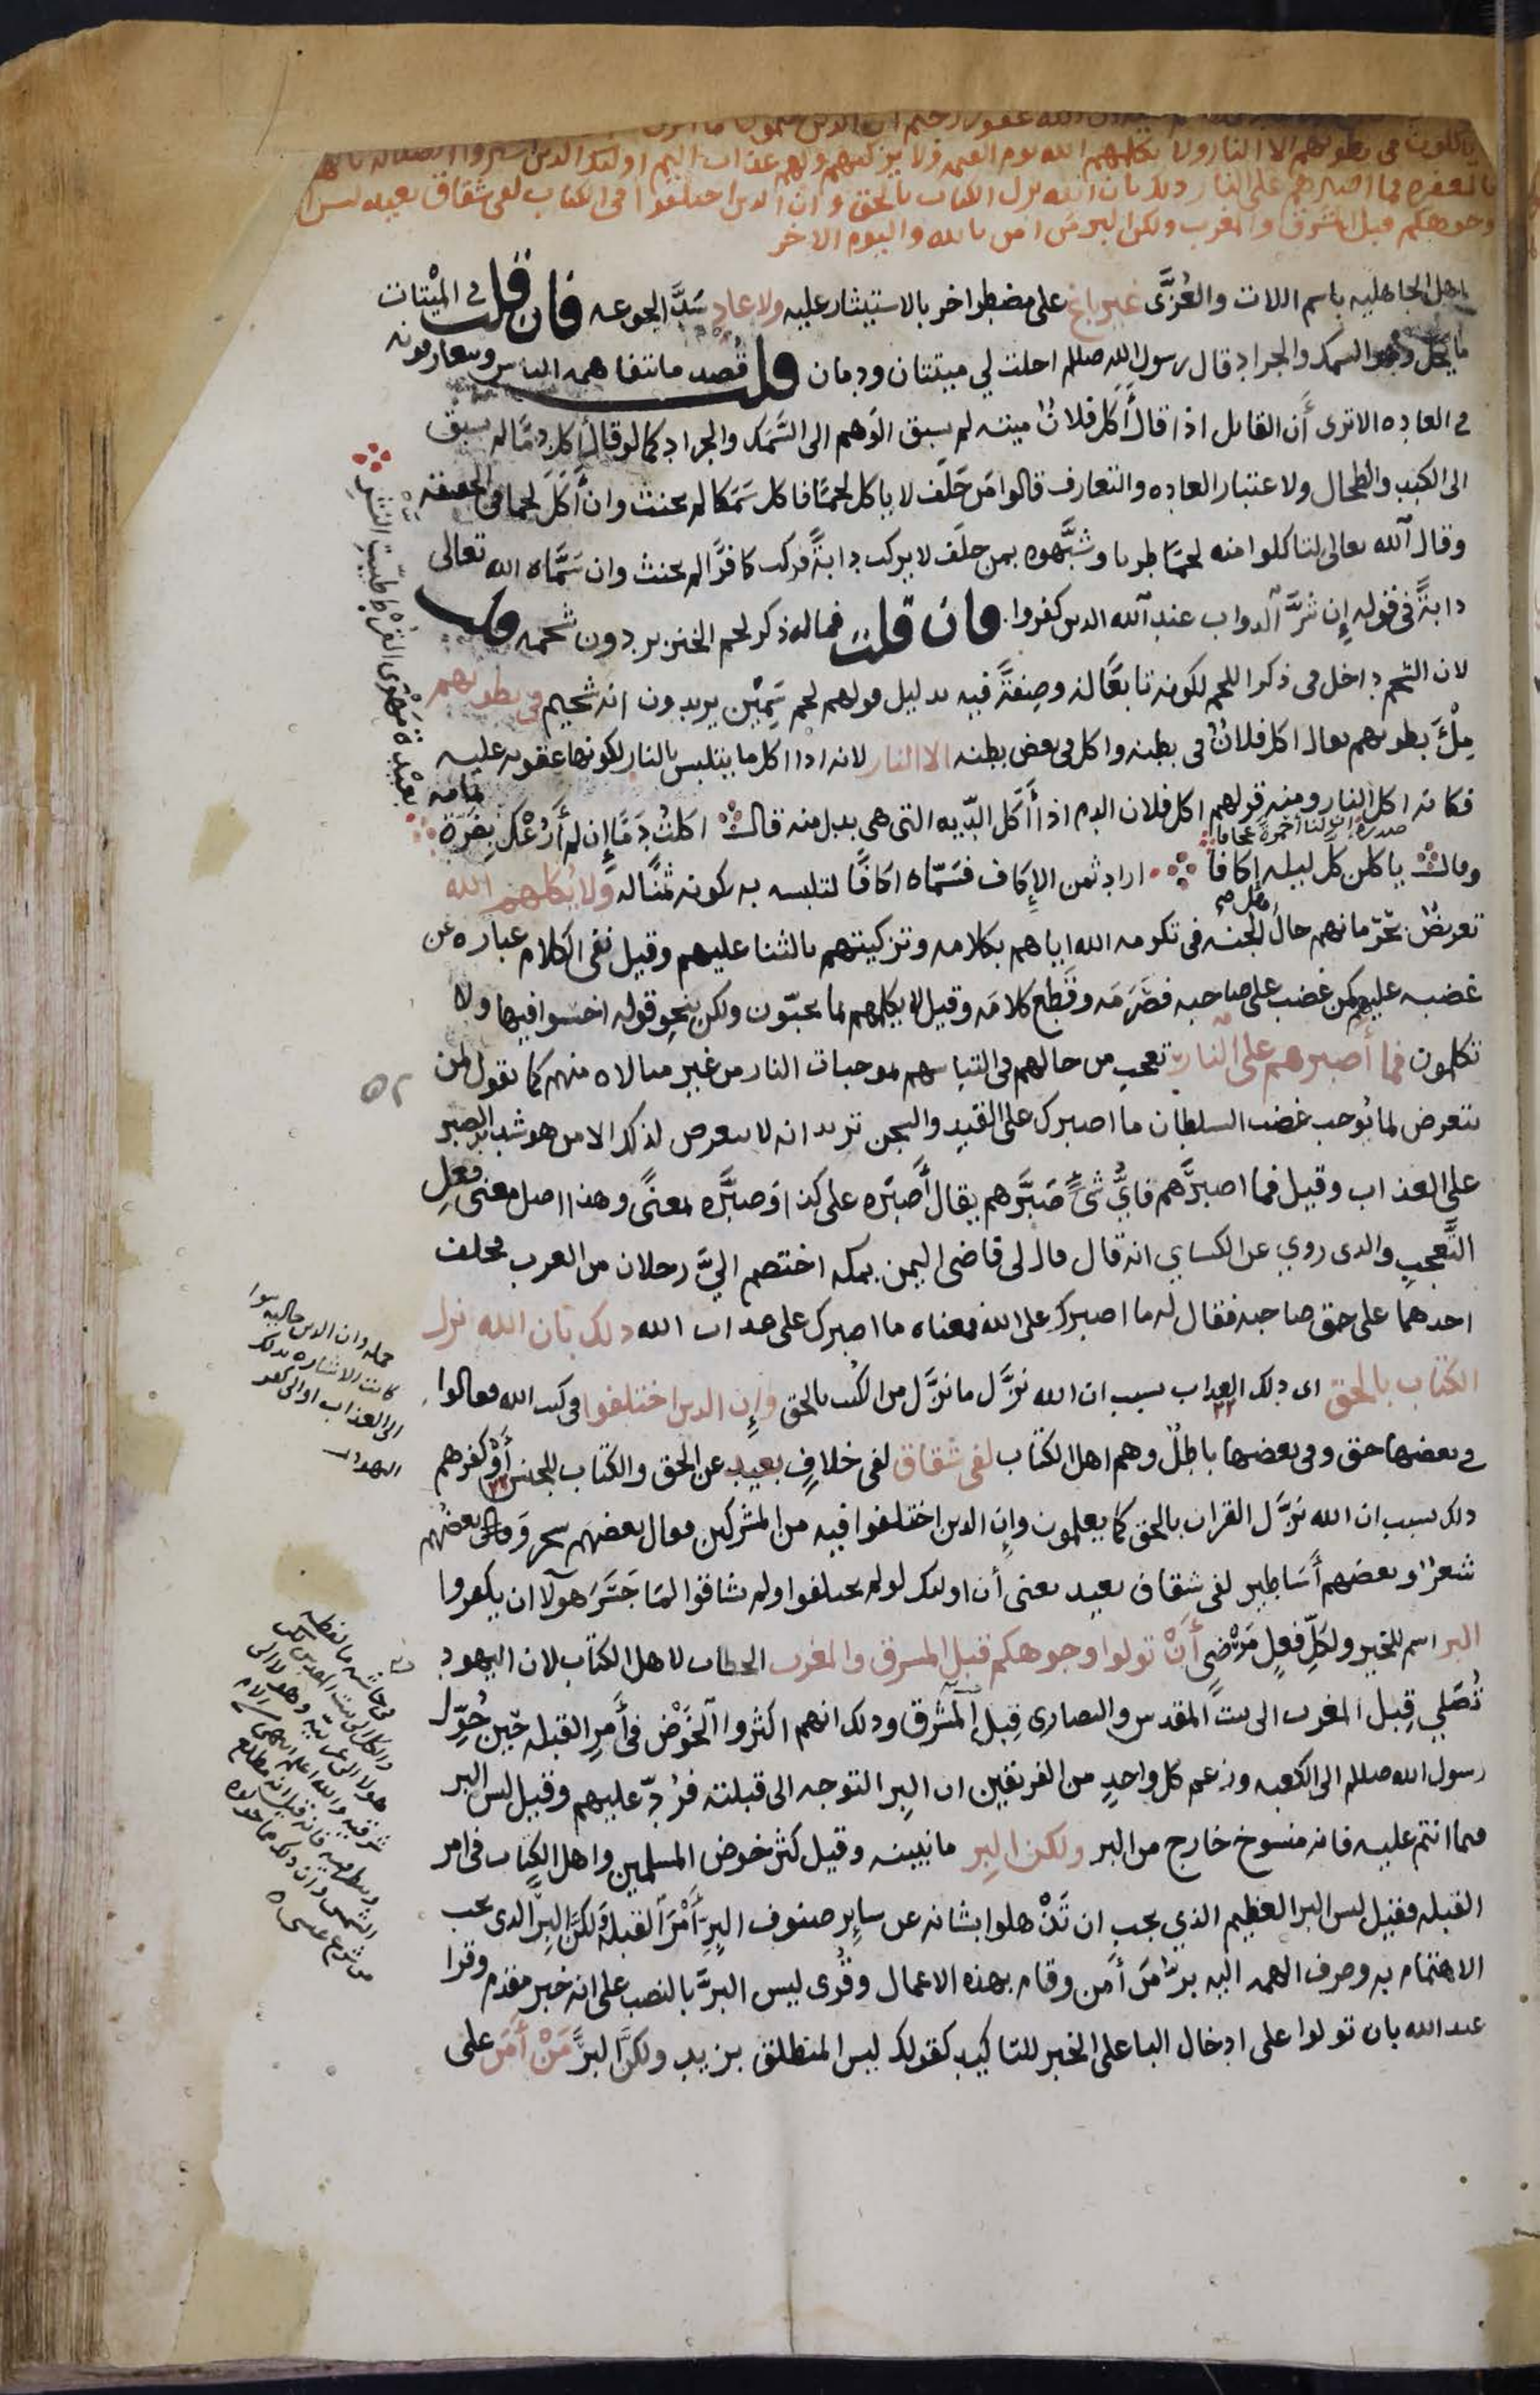 ياكلون في بطونهم الا النار ولا يكلمهم الله يوم القيمه ولا يزكيهم ولهم عذاب اليم اولئك الذين اشتروا الضلاله بالهدى
بالمغفره فما اصبرهم على النار ذلك بان الله نزل الكتاب بالحق وان الذين اختلفوا في الكتاب لفي شقاق بعيد ليس
وجوهكم قبل المشرق والمغرب ولكن البر من امن بالله واليوم الاخر
اهل الجاهليه باسم اللات والعُزَّى غير باغ على مضطر اخر بالاستيثار عليه ولا عاد سَدَّ الجوعه فان قلت في الميْتات
ما يحل وهو السمك والجراد قال رسول الله صللم احلت لي ميتتان ودمان قلت قُصد ما تتفاهمه الناس ويتعارفونه
في العاده الا ترى أن القايل اذا قال أكل فلانٌ ميته لم يسبق الوهم الى السَّمَك والجراد كما لو قال أكل دمًا لم يسبق
الى الكبد والطحال ولاعتبار العاده والتعارف قالوا مَن حَلَف لا ياكل لحمًا فاكل سَمَكا لم يحنث وان أكَلَ لحما في الحقيقه
وقال الله تعالى لتاكلوا منه لحمًا طريا وشبَّهوه بمن حلَف لا يركب دابةً فركب كافرًا لم يحنث وان سَمَّاه الله تعالى
دابةً في قوله إن شرَّ الدواب عند الله الذين كفروا فان قلت فما له ذكر لحم الخنزير دون شحمه قلت
لان الشحم داخل في ذكر اللحم لكونه تابعًا له وصِفَةً فيه بدليل قولهم لحم سَمِيْن يريدون انه شحيم في بطونهم
مِلْءَ بطونهم يقال اكل فلانٌ في بطنه واكل في بعض بطنه الا النار لانه اذا اكل ما يتلبس بالنار لكونها عقوبه عليه
فكانه اكل النار ومنه قولهم اكل فلان الدم اذا أكل الدّيه التي هي بدل منه قال اكلتُ دَمًا إن لم أرُعْكِ بِضَرَّة تمامه
بعيدة مهوى القُرْط طيّبة النشر
صدره إن لنا أحمرة عجافا
وقال ياكلن كل ليله إكافا اراد ثمن الإِكاف فسَمّاه اكافًا لتلبسه به بكونه ثمنًا له ولا يُكلمهم الله
تعريضٌ بحرمانهم حالَ أهل الجنه في تكرمه الله اياهم بكلامه وتزكيتهم بالثنا عليهم وقيل نفي الكلام عباره عن
غضبه عليهم كمن غضب على صاحبه فصَرَمَه وقَطع كلامَه وقيل لا يكلمهم بما يحبّون ولكن بنحو قوله اخسوا فيها ولا
تكلمون فما أصبرهم على النار تعجب من حالهم في التباسهم بموجبات النار من غير مبالاه منهم كما تقول لمن
يتعرض لما يُوجب غضب السلطان ما اصبرك على القيد والسجن تريد انه لا يتعرض لذلك الا من هو شديد الصبر
على العذاب وقيل فما اصبرَهم فايُّ شيٍّ صَبَّرهم يقال أصبَره على كذا وصَبَّره بمعنًى وهذا اصل معنى فعلِ
التَّعجب والذي روي عن الكساي انه قال قال لي قاضي اليمن بمكه اختصم اليَّ رجلان من العرب فحلف
احدهما على حق صاحبه فقال له ما اصبرك على الله فمعناه ما اصبرك على عذاب الله ذلك بان الله نزل
الكتاب بالحق اي ذلك العذاب بسبب ان الله نزَّل ما نزَّل من الكتب بالحق وإن الذين اختلفوا في كتب الله فقالوا
في بعضها حق وفي بعضها باطلٌ وهم اهل الكتاب لفي شقاق لفي خلافٍ بعيد عن الحق والكتاب للجنس أو كفرهم
ذلك بسبب ان الله نزَّل القران بالحق كما يعلمون وإن الذين اختلفوا فيه من المشركين فقال بعضهم سحر وقال بعضهم
شعرٌ وبعضهم أساطير لفي شقاق بعيد يعني أن اولئك لو لم يختلفوا ولم يشاقوا لمَا جَسَرَ هولا ان يكفروا
البر اسم للخير ولكلِّ فعلٍ مَرْضي أنْ تولوا وجوهكم قبل المشرق والمغرب الخطاب لاهل الكتاب لان اليهود
تُصَلي قِبل المغرب الى بيت المقدس والنصارى قِبل المشرق وذلك انهم اكثروا الخَوْضَ في أمرِ القبله حين حُوِّل
رسول الله صللم الى الكعبه وزعم كل واحدٍ من الفريقين ان البر التوجه الى قبلته فرُدّ عليهم وقيل ليس البر
فيما انتم عليه فانه منسوخ خارج من البر ولكن البر ما نبينه وقيل كثر خوض المسلمين واهل الكتاب في امر
القبله فقيل ليس البر العظيم الذي يجب ان تَذْهلوا بشانه عن سايِر صنوف البِرِّ أمْرَ القبله ولكنَّ البِرَّ الذي يجب
الاهتمام به وصرف الهمه اليه برُّ مَن أمن وقام بهذه الاعمال وقُرى ليس البرَّ بالنصب على انه خبر مقدم وقرا
عبد الله بان تولوا على ادخال الباء على الخبر للتاكيد كقولك ليس المنطلق بزيد ولكنَّ البرَّ مَنْ أمَن على
جمله وان الذين حاليه سوا
كانت الاشاره بذلك
الى العذاب او الى كفر
اليهود